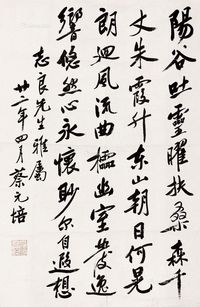 陽谷吐靈曜扶桑森千
丈朱霞升東山朝日何晃
朗迴風流曲櫺幽室發逸
響悠然心永懷眇尔自遐想
志良先生雅属
廿二年四月蔡元培